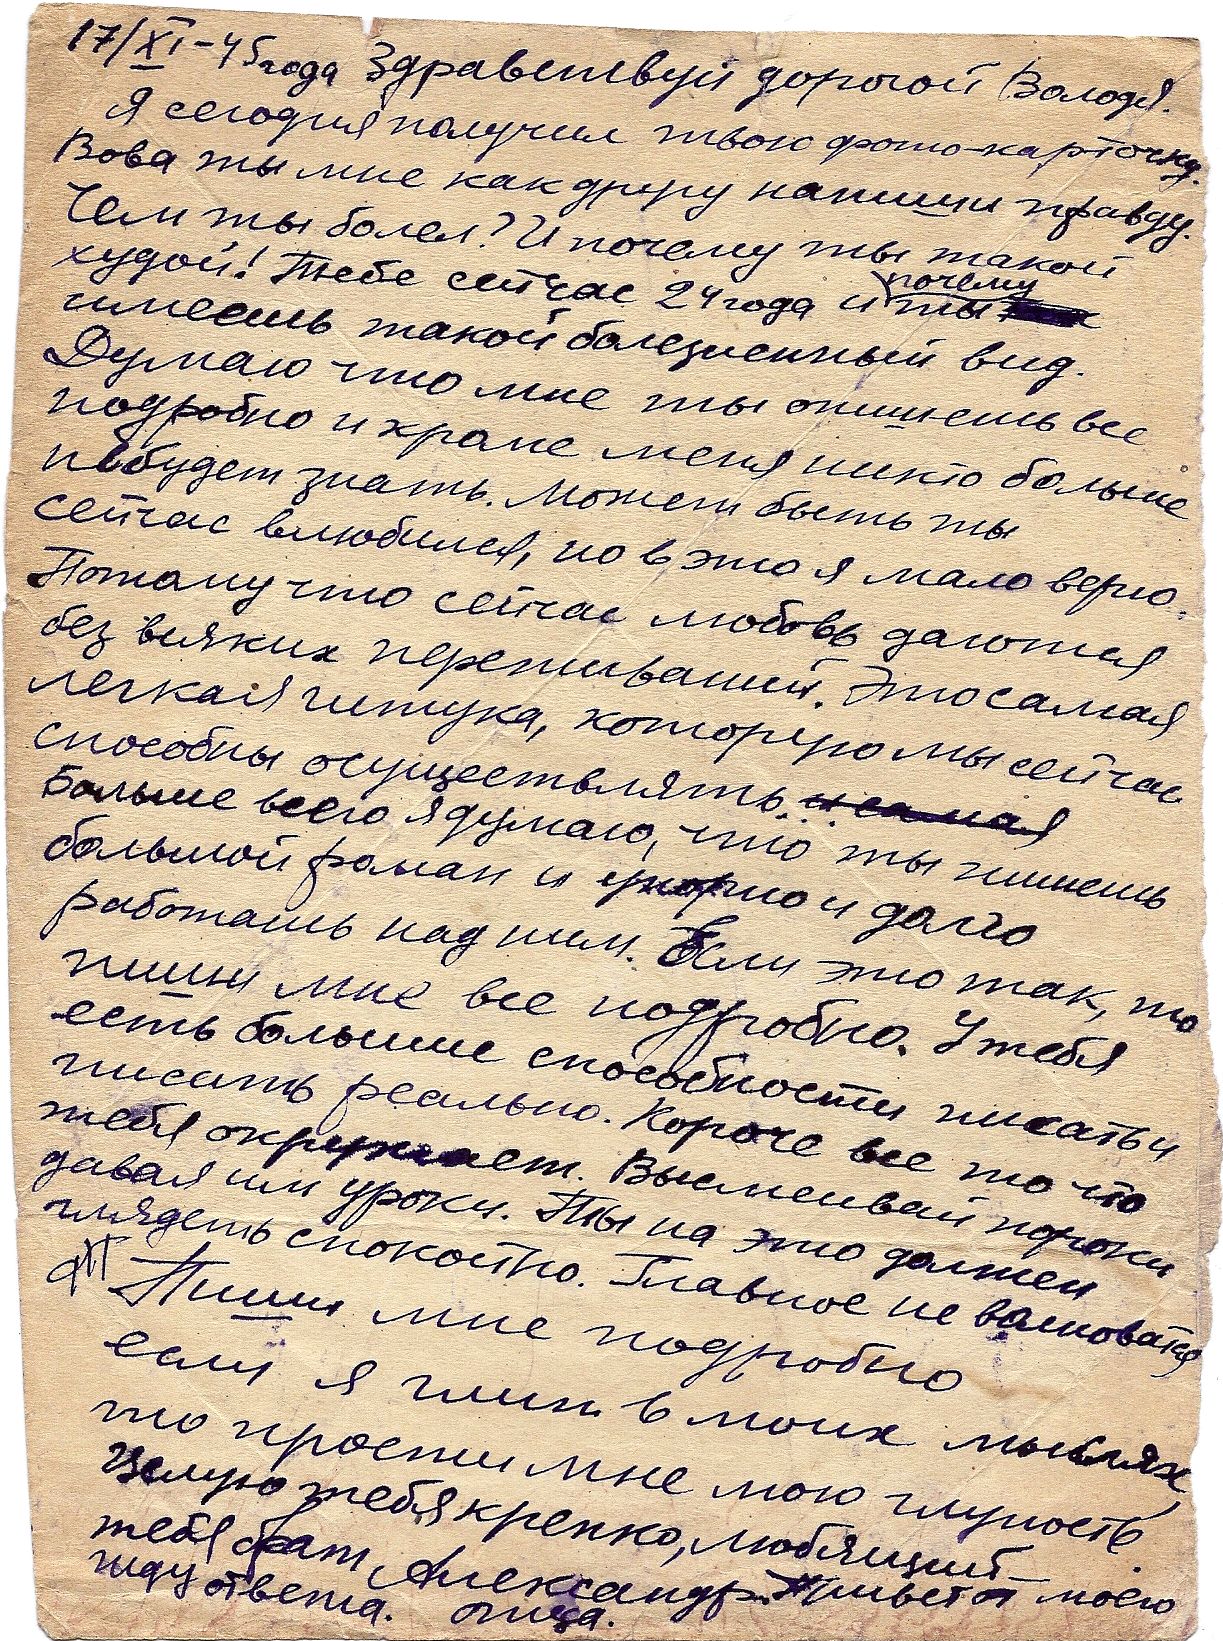 17/XI-45 года Здравствуй дорогой Володя.
Я сегодня получил твою фото-карточку.
Вова ты мне как другу напиши правду.
Чем ты болел? И почему ты такой
худой! Тебе сейчас 24 года и почему ты
имеешь такой болезненный вид.
Думаю что мне ты опишешь все
подробно и кроме меня никто больше
небудет знать. Может быть ты
сейчас влюбился, но в это я мало верю.
Потому что сейчас любовь дается
без всяких переживаний. Это самая
легкая штука, которую мы сейчас
способны осуществлять. и самая
Больше всего я думаю, что ты пишешь
большой роман и упорно и долго
работаешь над ним. Если это так, то
пиши мне все подробно. У тебя
есть большие способности писать и
писать реально. Короче все то что
тебя окружает. Высмеивай пороки
давая им уроки. Ты на это должен
глядеть спокойно. Главное не волноваться
Пиши мне подробно
если я глуп в моих мыслях,
то прости мне мою глупость.
Целую тебя крепко, любящий
тебя брат Александр. Привет от моего
жду ответа. отца.